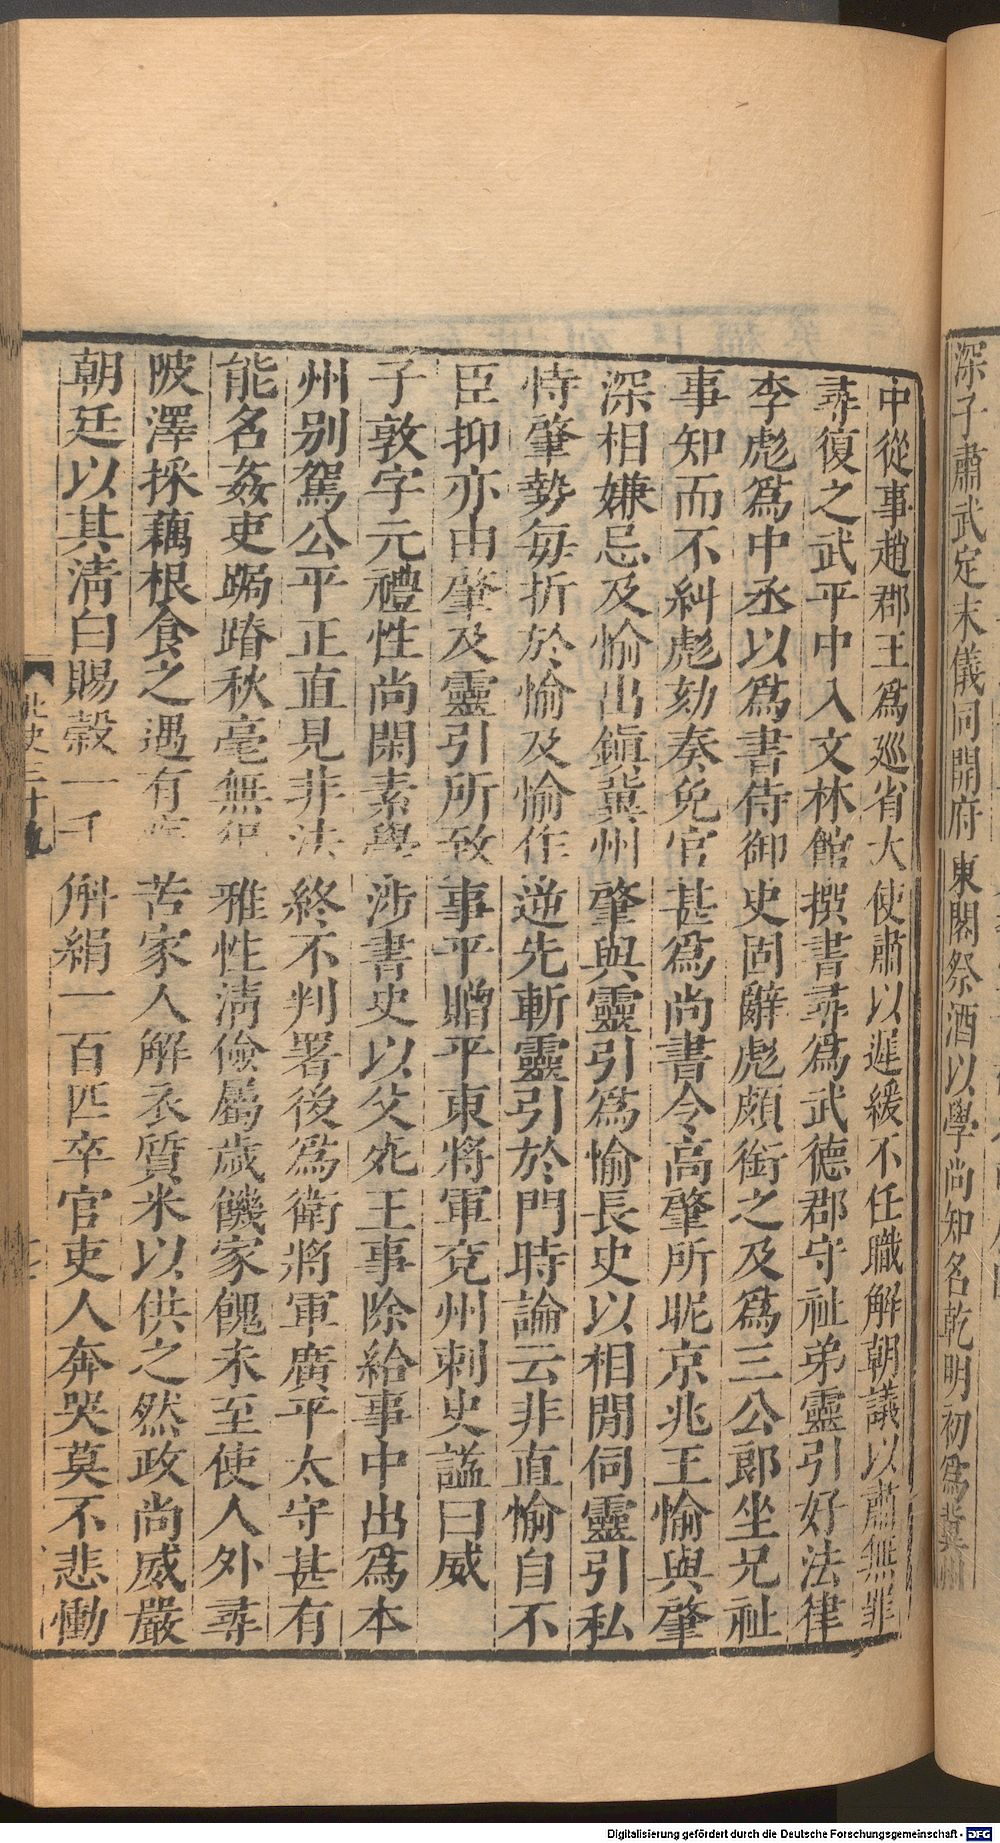 深子肅武定末儀同開府東閣祭酒以學尚知名乾明初爲冀州
中從事趙郡王爲廵省大使肅以遲緩不任職解朝議以肅無罪
尋復之武平中入文林館撰書尋爲武德郡守祉弟靈引好法律
李彪爲中丞以爲書侍御史固辭彪頗銜之及爲三公郎坐兄祉
事知而不糾彪劾奏免官甚爲尚書令高肇所昵京兆王愉與肇
深相嫌忌及愉出鎭冀州肇與靈引爲愉長史以相閒伺靈引私
恃肇勢每折於愉及愉作逆先斬靈引於門時論云非直愉自不
臣抑亦由肇及靈引所致事平贈平東將軍兗州刺史諡曰威
子敦字元禮性尚閑素學涉書史以父死王事除給事中出爲本
州别駕公平正直見非法終不判署後爲衛將軍廣平太守甚有
能名姦吏跼蹐秋毫無犯雅性清儉屬歲饑家餽未至使人外尋
陂澤採藕根食之遇有疾苦家人解衣質米以供之然政尚威嚴
朝廷以其清白賜穀一千斛絹一百匹卒官吏人奔哭莫不悲慟
北史三十九
Digitalisierung gefördert durch die Deutsche Forschungsgemeinschaft - DFG